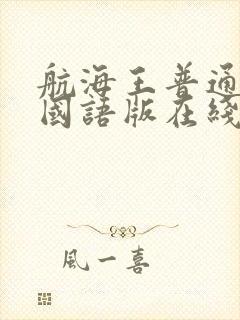 航海王普通
國語版在綫
風一喜